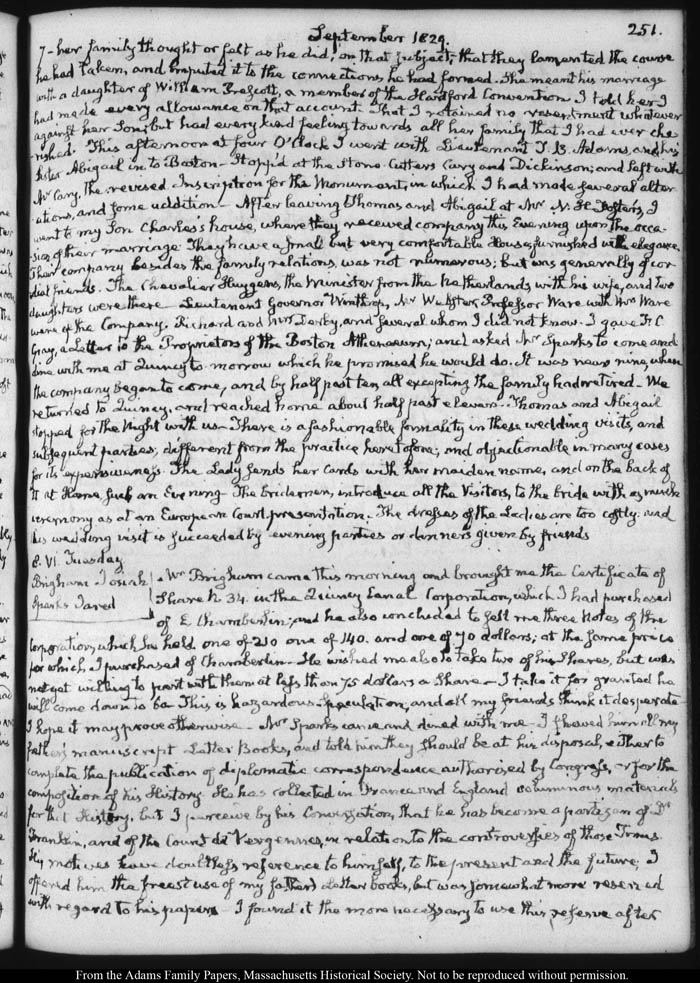 September 1829.
251.
7 - her family thought or felt as he did, on that subject, that they lamented the course
he had taken, and imputed it to the connections he had formed. She meant his marriage
with a daughter of William Prescott, a member of the Hartford Convention. I told her I
had made every allowance on that account. That I retained no resentment whatever
against her Son, but had every kind feeling towards all her family that I had ever che
rished. This afternoon at four O'Clock I went with Lieutenant T. B. Adams, and his
Sister Abigail in to Boston - Stopp'd at the Stone Cutters Cary and Dickinson; and left with
Mr Cary, the revised Inscription for the Monument, in which I had made several alter
ations, and some addition - After leaving Thomas and Abigail at Mr N. Foster's, I
went to my Son Charles's house, where they received company this Evening upon the occa
sion of their marriage. They have a small but very comfortable House, furnished with elegance.
Their company besides the family relations, was not numerous; but was generally of cor
dial friends. The Chevalier Huygens, the Minister from the Netherlands, with his wife, and two
daughters were there - Lieutenant Governor Winthrop, Mr Webster, Professor Ware with Mrs Ware
were of the Company. Richard and Mrs Derby, and several whom I did not know. I gave F. C
Gray, a Letter to the Proprietors of the Boston Athenaeum; and asked Mr Sparks to come and
dine with me at Quincy to-morrow which he promised he would do. It was near nine, when
the company began to come, and by half past ten, all excepting the family had retired - We
returned to Quincy, and reached home about half past eleven. Thomas and Abigail
stopped for the Night with us - There is a fashionable formality in these wedding visits, and
subsequent parties, different from the practice heretofore; and objectionable in many cases
for its expensiveness. The Lady sends her Cards with her maiden name, and on the back of
it at Home, such an Evening. The bridesmen, introduce all the Visitors, to the bride with as much
ceremony as at an European Court presentation. The dresses of the Ladies are too costly. and
this wedding visit is succeeded by evening parties or dinners given by friends
8. VI. Tuesday
Brigham Josiah
Sparks Jared
Mr Brigham came this morning and brought me the Certificate of
Share N. 34. in the Quincy Canal Corporation, which I had purchased
of E. Chamberlin; and he also concluded to sell me three Notes of the
Corporation, which he held one of 210 one of 140. and one of 70 dollars; at the same price
for which I purchased of Chamberlin - He wished me also to take two of his Shares, but was
not yet willing to part with them at less than 75 dollars a Share - I take it for granted he
will come down to 60. This is hazardous Speculation, and all my friends think it desperate -
I hope it may prove otherwise - Mr Sparks came and dined with me - I shewed him all my
father's manuscript Letter Books, and told him they should be at his disposal, either to
complete the publication of diplomatic correspondence authorised by Congress, or for the
composition of his History. He has collected in France and England voluminous materials
for that History, but I perceive by his Conversation, that he has become a partizan of Dr
Franklin, and of the Count de Vergennes, in relation to the controversies of those Times.
His motives have doubtless reference to himself, to the present and the future. I
offered him the freest use of my father's Letter books, but was somewhat more reserved
with regard to his papers - I found it the more necessary to use this reserve after
From the Adams Family Papers, Massachusetts Historical Society. Not to be reproduced without permission.